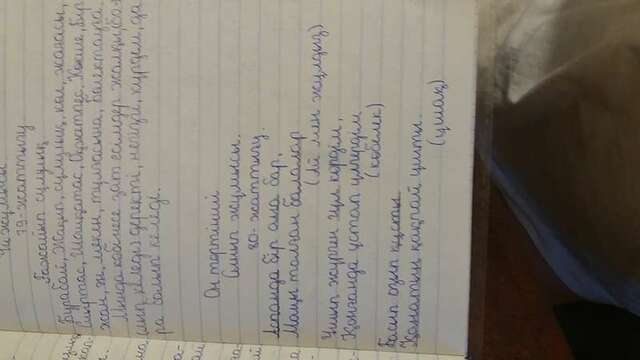 Үй жұмысы.
79-жаттығу
Ғажайып сұлулық
Бурабай, Жақып, сұлулық, көл, жағасы,
Сыртас, Ұшқатас, Оқжетпес, Көкше, Бір
жан, ән, мекен, тұлғасына, Бөлектаура
Мұнда көбінесе зат есімдер жалқы(бо-
лып келеді) деректі, негізгі, күрделі, да
ра болып келеді.
Он төртінші
Сынып жұмысы.
80-жаттығу
Аспанда бір ана бар,
Маңы толған балалар
(Ай мен жұлдыз)
Ұшып жүрген гүл көрдім,
Қонғанда ұстап үлгердім
(көбелек)
Басып озып құсты
Қанатын қақпай ұшты.
(ұшақ)